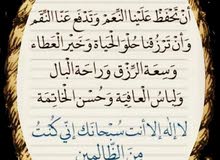 أَنْ تَحْفَظَ عَلَيْنَا النِّعَمَ وَتَدْفَعَ عَنَّا النِّقَمَ
وَأَنْ تَرْزُقَنَا حُلْوَ الْحَيَاةِ وَخَيْرَ الْعَطَاءِ
وَسِعَةَ الرِّزْقِ وَرَاحَةَ الْبَالِ
وَلِبَاسَ الْعَافِيَةِ وَحُسْنَ الْخَاتِمَةِ
لا إِلَهَ إِلا أَنْتَ سُبْحَانَكَ إِنِّي كُنْتُ
مِنَ الظَّالِمِينَ